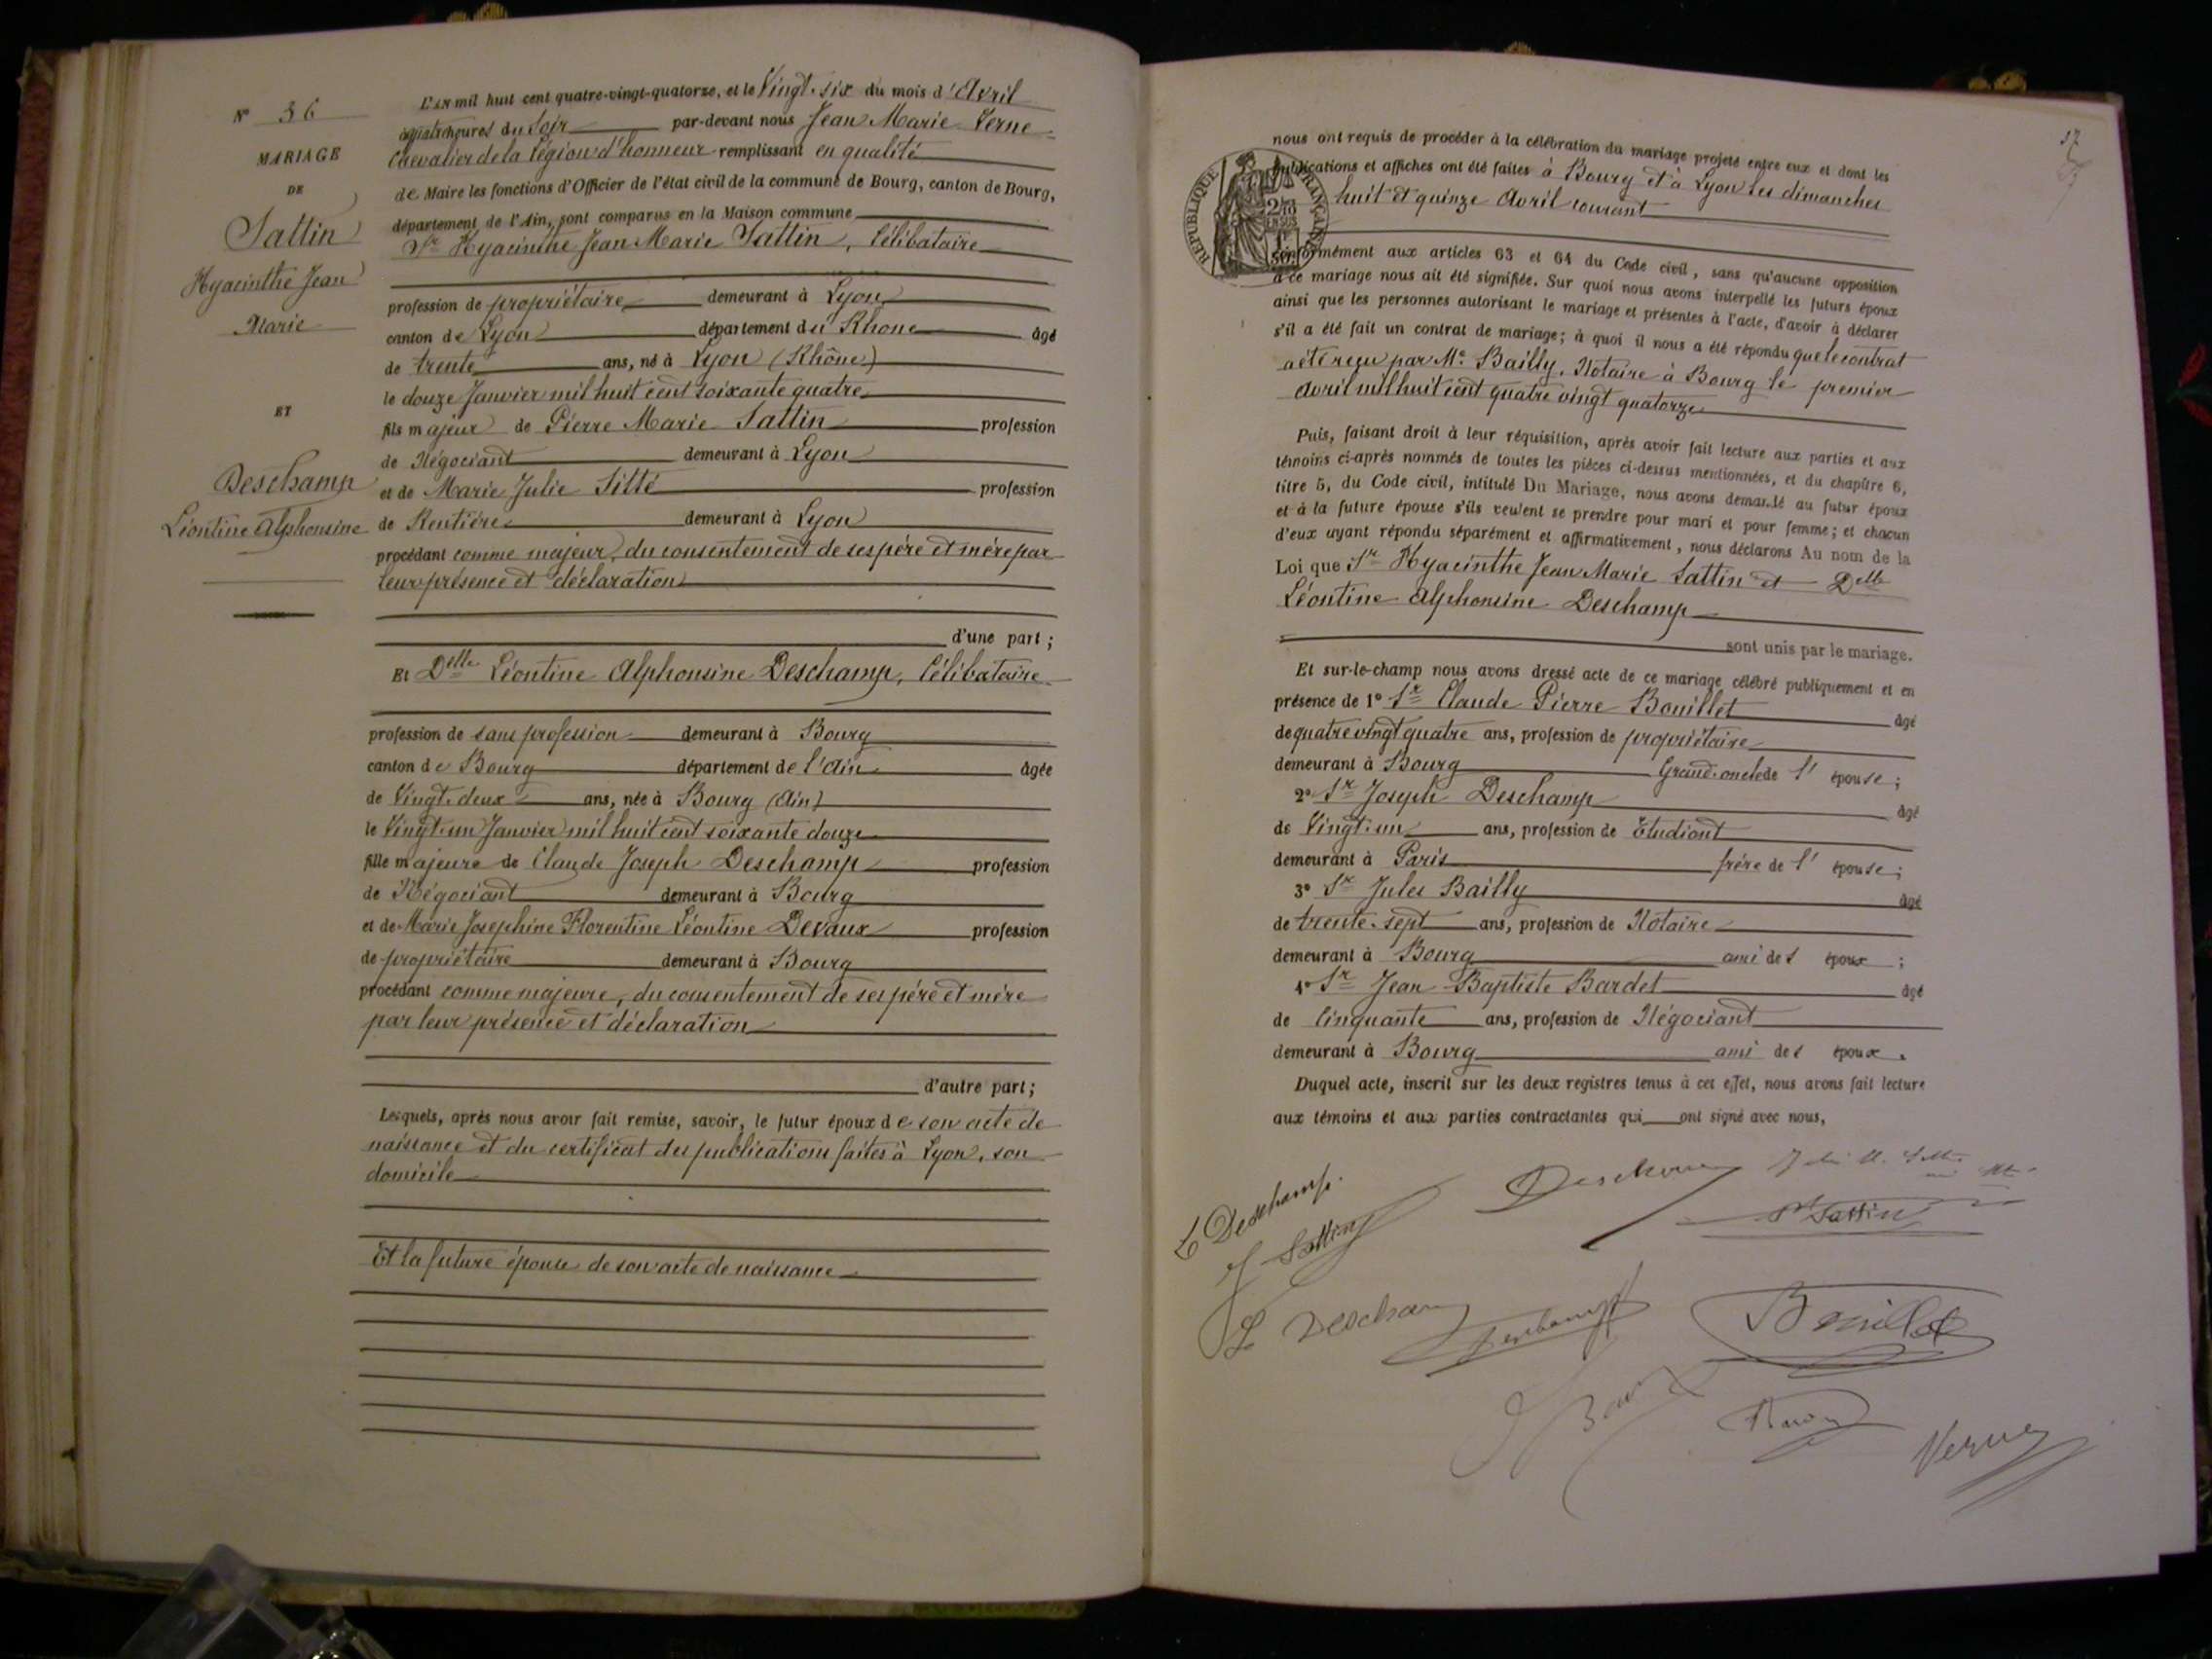 N° 36
MARIAGE
DE
Sattin
Hyacinthe Jean
Marie
ET
Deschamp
Léontine Alphonsine
L'an mil huit cent quatre-vingt-quatorze, et le Vingt-six du mois d'Avril
à quatre heures du Soir par-devant nous Jean Marie Verne
Chevalier de la Légion d'honneur remplissant en qualité
de Maire les fonctions d'Officier de l'état civil de la commune de Bourg, canton de Bourg,
département de l'Ain, sont comparus en la Maison commune
Sr Hyacinthe Jean Marie Sattin, Célibataire
profession de propriétaire demeurant à Lyon
canton de Lyon département du Rhone âgé
de trente ans, né à Lyon (Rhône)
le douze Janvier mil huit cent soixante quatre
fils majeur de Pierre Marie Sattin profession
de Négociant demeurant à Lyon
et de Marie Julie Sitté profession
de Rentière demeurant à Lyon
procédant comme majeur, du consentement de ses père et mère par
leur présence et déclaration
d'une part ;
Et Delle Léontine Alphonsine Deschamp, Célibataire
profession de sans profession demeurant à Bourg
canton de Bourg département de l'Ain âgée
de Vingt-deux ans, née à Bourg (Ain)
le Vingt-un Janvier mil huit cent soixante douze
fille majeure de Claude Joseph Deschamp profession
de Négociant demeurant à Bourg
et de Marie Josephine Florentine Léontine Devaux profession
de propriétaire demeurant à Bourg
procédant comme majeure, du consentement de ses père et mère
par leur présence et déclaration
d'autre part ;
Lesquels, après nous avoir fait remise, savoir, le futur époux de son acte de
naissance et du certificat des publications faites à Lyon, son
domicile
Et la future épouse de son acte de naissance
37
RÉPUBLIQUE FRANÇAISE
nous ont requis de procéder à la célébration du mariage projeté entre eux et dont les
publications et affiches ont été faites à Bourg et à Lyon les dimanches
huit et quinze Avril courant
conformément aux articles 63 et 64 du Code civil, sans qu'aucune opposition
à ce mariage nous ait été signifiée. Sur quoi nous avons interpellé les futurs époux
ainsi que les personnes autorisant le mariage et présentes à l'acte, d'avoir à déclarer
s'il a été fait un contrat de mariage ; à quoi il nous a été répondu que le contrat
a été reçu par Me Bailly, Notaire à Bourg le premier
Avril mil huit cent quatre vingt quatorze
Puis, faisant droit à leur réquisition, après avoir fait lecture aux parties et aux
témoins ci-après nommés de toutes les pièces ci-dessus mentionnées, et du chapitre 6,
titre 5, du Code civil, intitulé Du Mariage, nous avons demandé au futur époux
et à la future épouse s'ils veulent se prendre pour mari et pour femme ; et chacun
d'eux ayant répondu séparément et affirmativement, nous déclarons Au nom de la
Loi que Sr Hyacinthe Jean Marie Sattin et Delle
Léontine Alphonsine Deschamp
sont unis par le mariage.
Et sur-le-champ nous avons dressé acte de ce mariage célébré publiquement et en
présence de 1° Sr Claude Pierre Bouillet âgé
de quatre vingt quatre ans, profession de propriétaire
demeurant à Bourg Grand-oncle de l'épouse ;
2° Sr Joseph Deschamp âgé
de Vingt-un ans, profession de Etudiant
demeurant à Paris frère de l'épouse ;
3° Sr Jules Bailly âgé
de trente-sept ans, profession de Notaire
demeurant à Bourg ami des époux ;
4° Sr Jean Baptiste Bardet âgé
de Cinquante ans, profession de Négociant
demeurant à Bourg ami des époux.
Duquel acte, inscrit sur les deux registres tenus à cet effet, nous avons fait lecture
aux témoins et aux parties contractantes qui ont signé avec nous,
L Deschamp.
Sattin
Deschamp
Sattin
L Deschamp
Deschamp
Bouillet
Verne